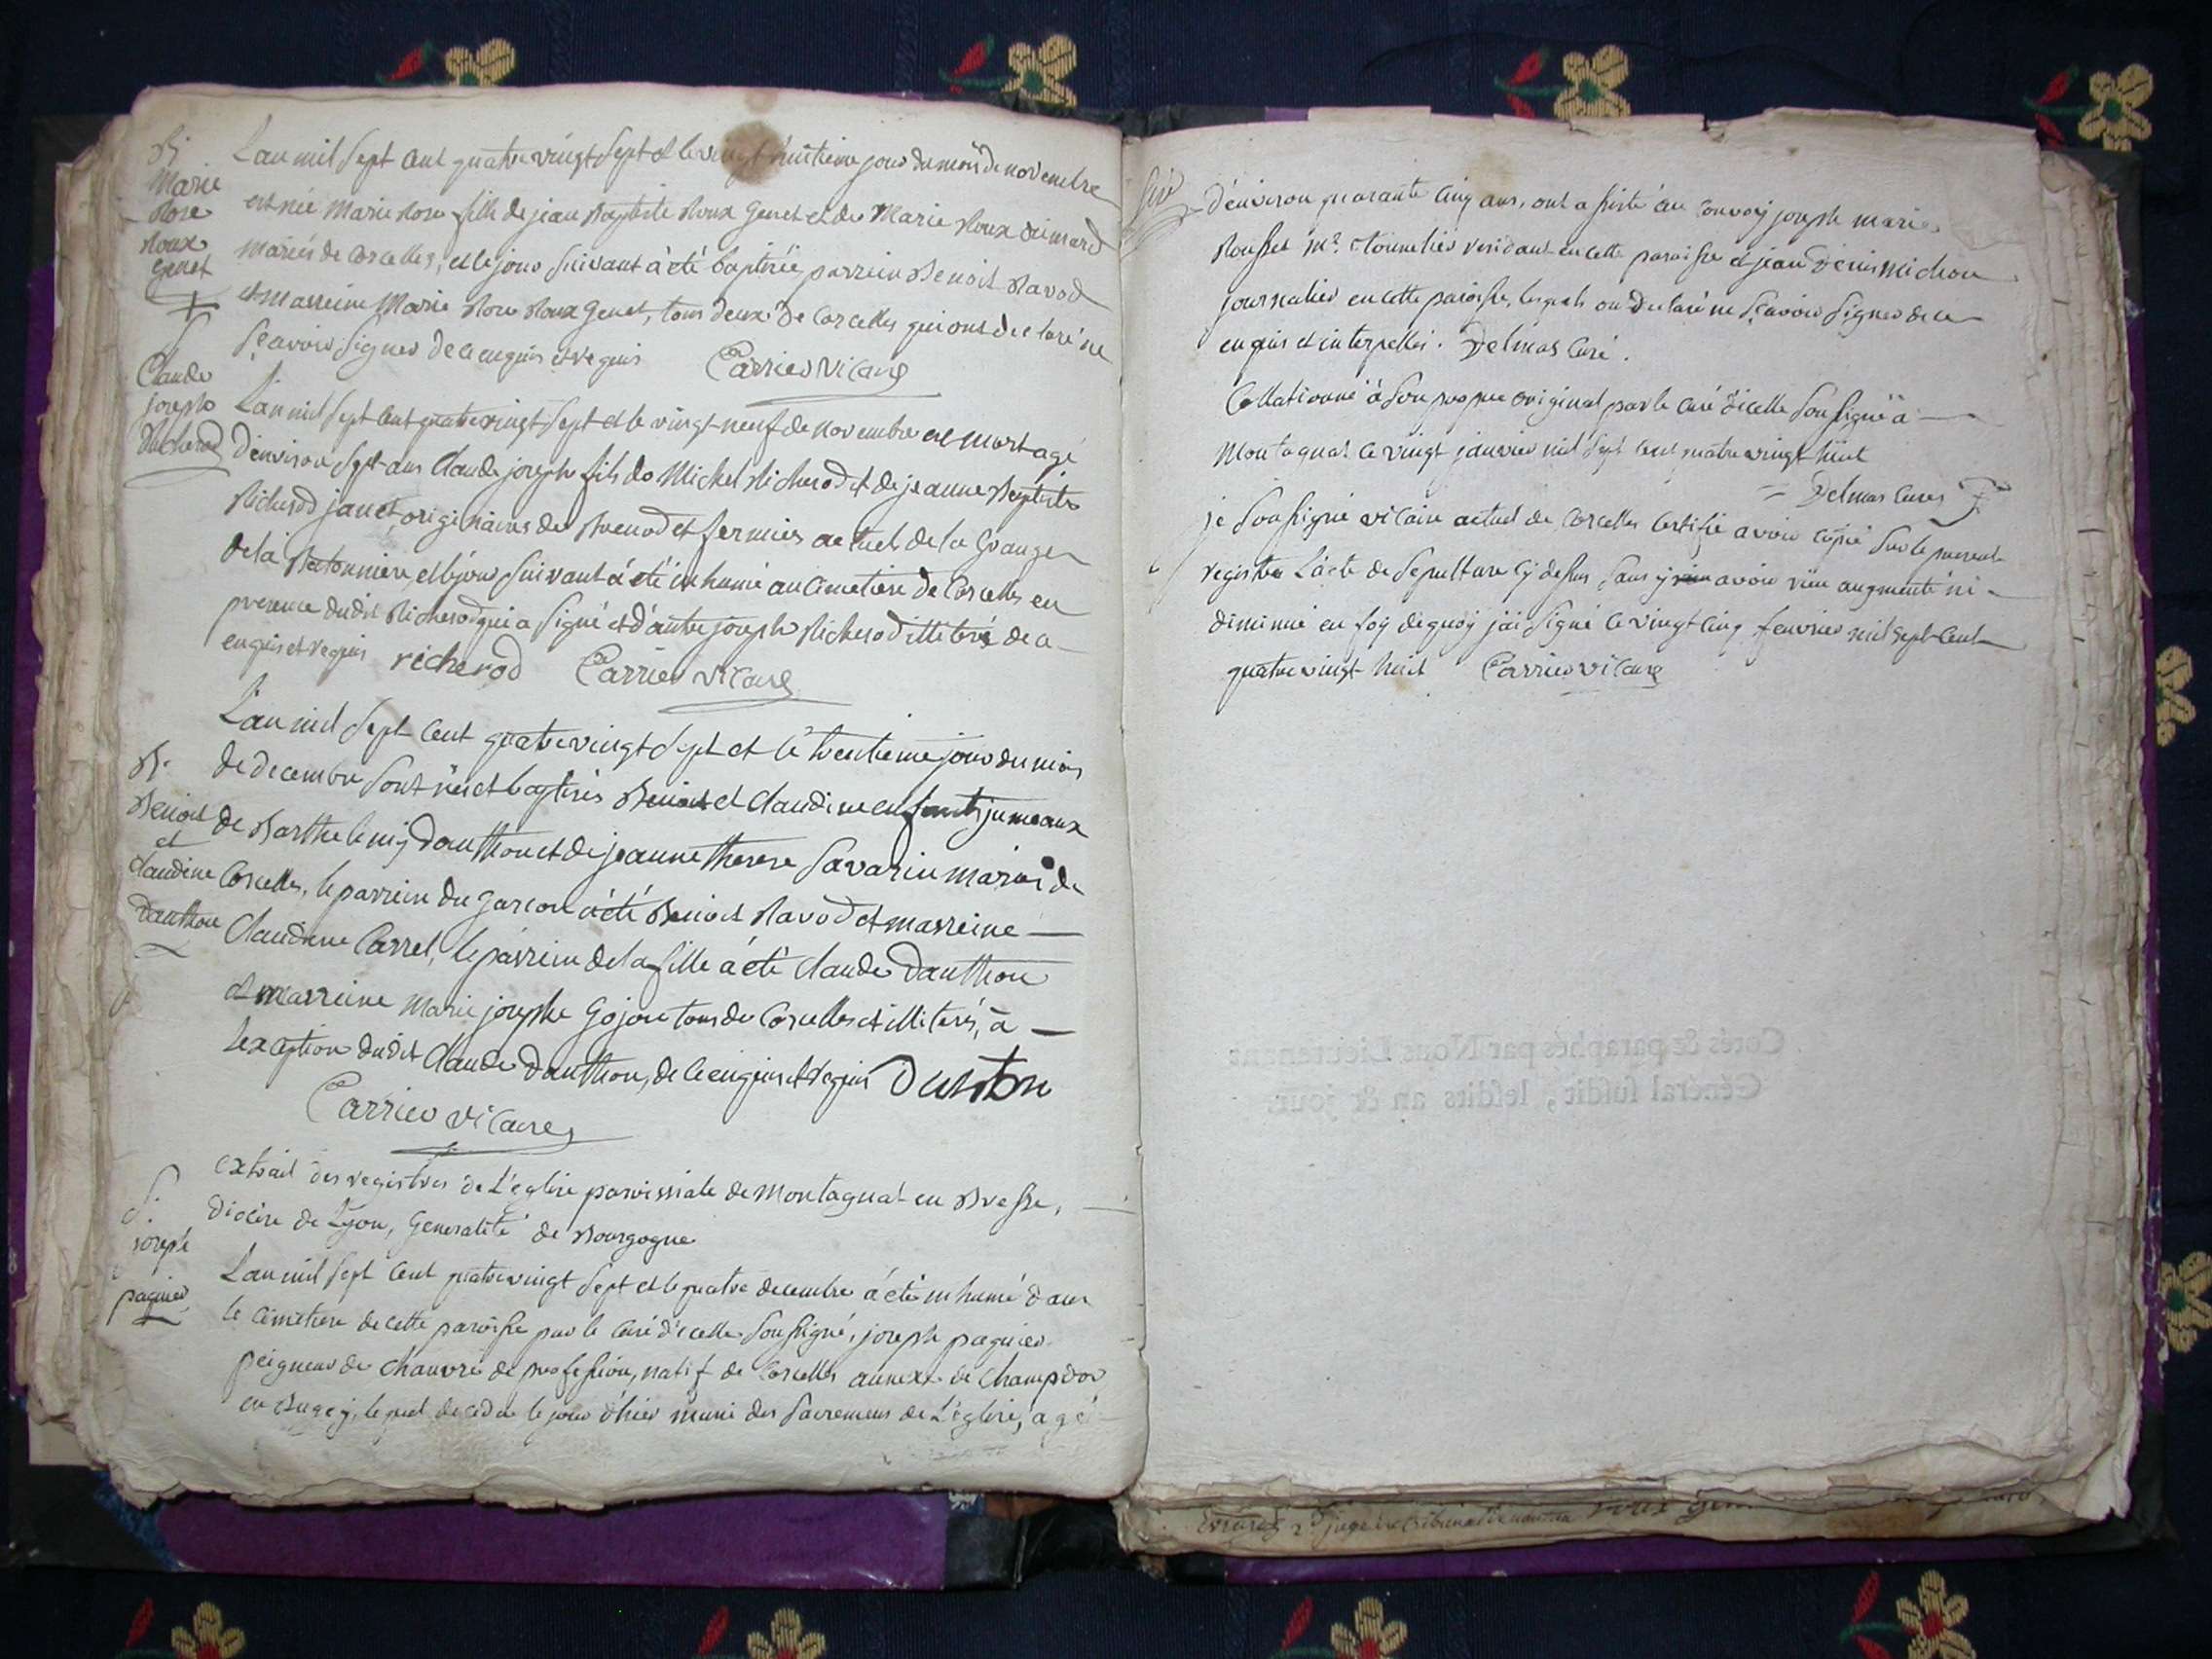 B
Marie
Rose
Roux
genet
L'an mil sept cent quatre vingt sept et le vingt huitieme jour du mois de novembre
est née Marie Rose fille de jean Baptiste Roux genet et de Marie Roux
mariés de Corcelles, et le jour suivant à été baptisée, parrein Benoit Ravod
et marreine Marie Rose Roux genet, tous deux de Corcelles qui ont declaré ne
sçavoir signer de ce enquis et requis Carrier vicaire
S
Claude
joseph
Richerod
L'an mil sept cent quatre vingt sept et le vingt neuf de novembre est mort agé
d'environ sept ans Claude joseph fils de Michel Richerod et de jeanne Baptiste
Richerod janet originaires de Brenod et fermier actuel de la Grange
de la Ratonniere, et le jour suivant à été inhumé au Cimetiere de Corcelles en
presence dudit Richerod qui a signé et d'autre joseph Richerod illiteré de ce
enquis et requis richerod Carrier vicaire
B.
Benoit
et
claudine
Danthon
L'an mil sept cent quatre vingt sept et le trentieme jour du mois
de decembre sont nés et baptisés Benoit et Claudine enfants jumeaux
de Barthelemy Danthon et de jeanne therese Savarin mariés de
Corcelles, le parrein du garcon à été Benoit Ravod et marreine
Claudine Carrel, le parrein de la fille à été Claude Danthon
et marreine Marie josephe Gojon tous de Corcelles et illiterés, à
l'exception dudit Claude Danthon, de ce enquis et requis Danton
Carrier vicaire
S.
joseph
paquier
extrait des registres de L'eglise paroissiale de Montagnat en Bresse,
Diocèse de Lyon, Generalité de Bourgogne
L'an mil sept cent quatre vingt sept et le quatre decembre à été inhumé dans
le Cimetiere de cette paroisse par le Curé d'icelle soussigné, joseph paquier
peigneur de chanvre de profession, natif de Corcelles annexe de Champdor
en Bugey, lequel decedé le jour d'hier muni des Sacremens de L'eglise, agé
d'environ quarante cinq ans, ont assisté au Convoy joseph marie
Rousset me. tonnelier residant en cette paroisse et jean Denis Michon
journalier en cette paroisse, lesquels ont declaré ne sçavoir signer de ce
enquis et interpellés. Delmas Curé.
Collationné à son propre original par le curé d'icelle soussigné à
Montagnat ce vingt janvier mil sept cent quatre vingt huit
Delmas Curé
je soussigné vicaire actuel de Corcelles Certifie avoir copié sur le present
registre L'acte de sepulture cy dessus sans y avoir rien augmenté ni
diminué en foy de quoy j'ai signé ce vingt cinq fevrier mil sept cent
quatre vingt huit Carrier vicaire
Cotés & paraphés par Nous Lieutenant
Général susdit, lesdits an & jour.